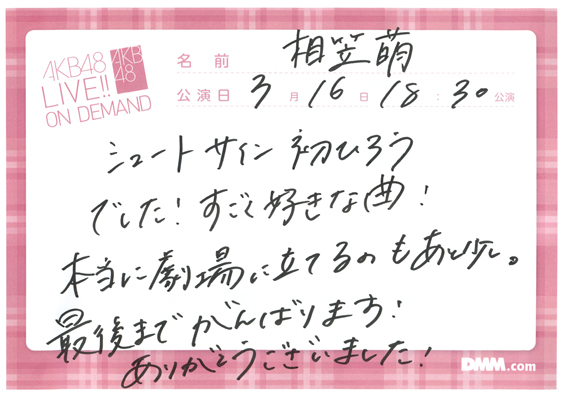 AKB48
LIVE!!
ON DEMAND
AKB
48
名前 相笠萌
公演日 3月16日 18:30公演
シュートサイン 初ひろう
でした!すごく好きな曲!
本当に劇場に立てるのもあと少し。
最後までがんばります!
ありがとうございました!
DMM.com